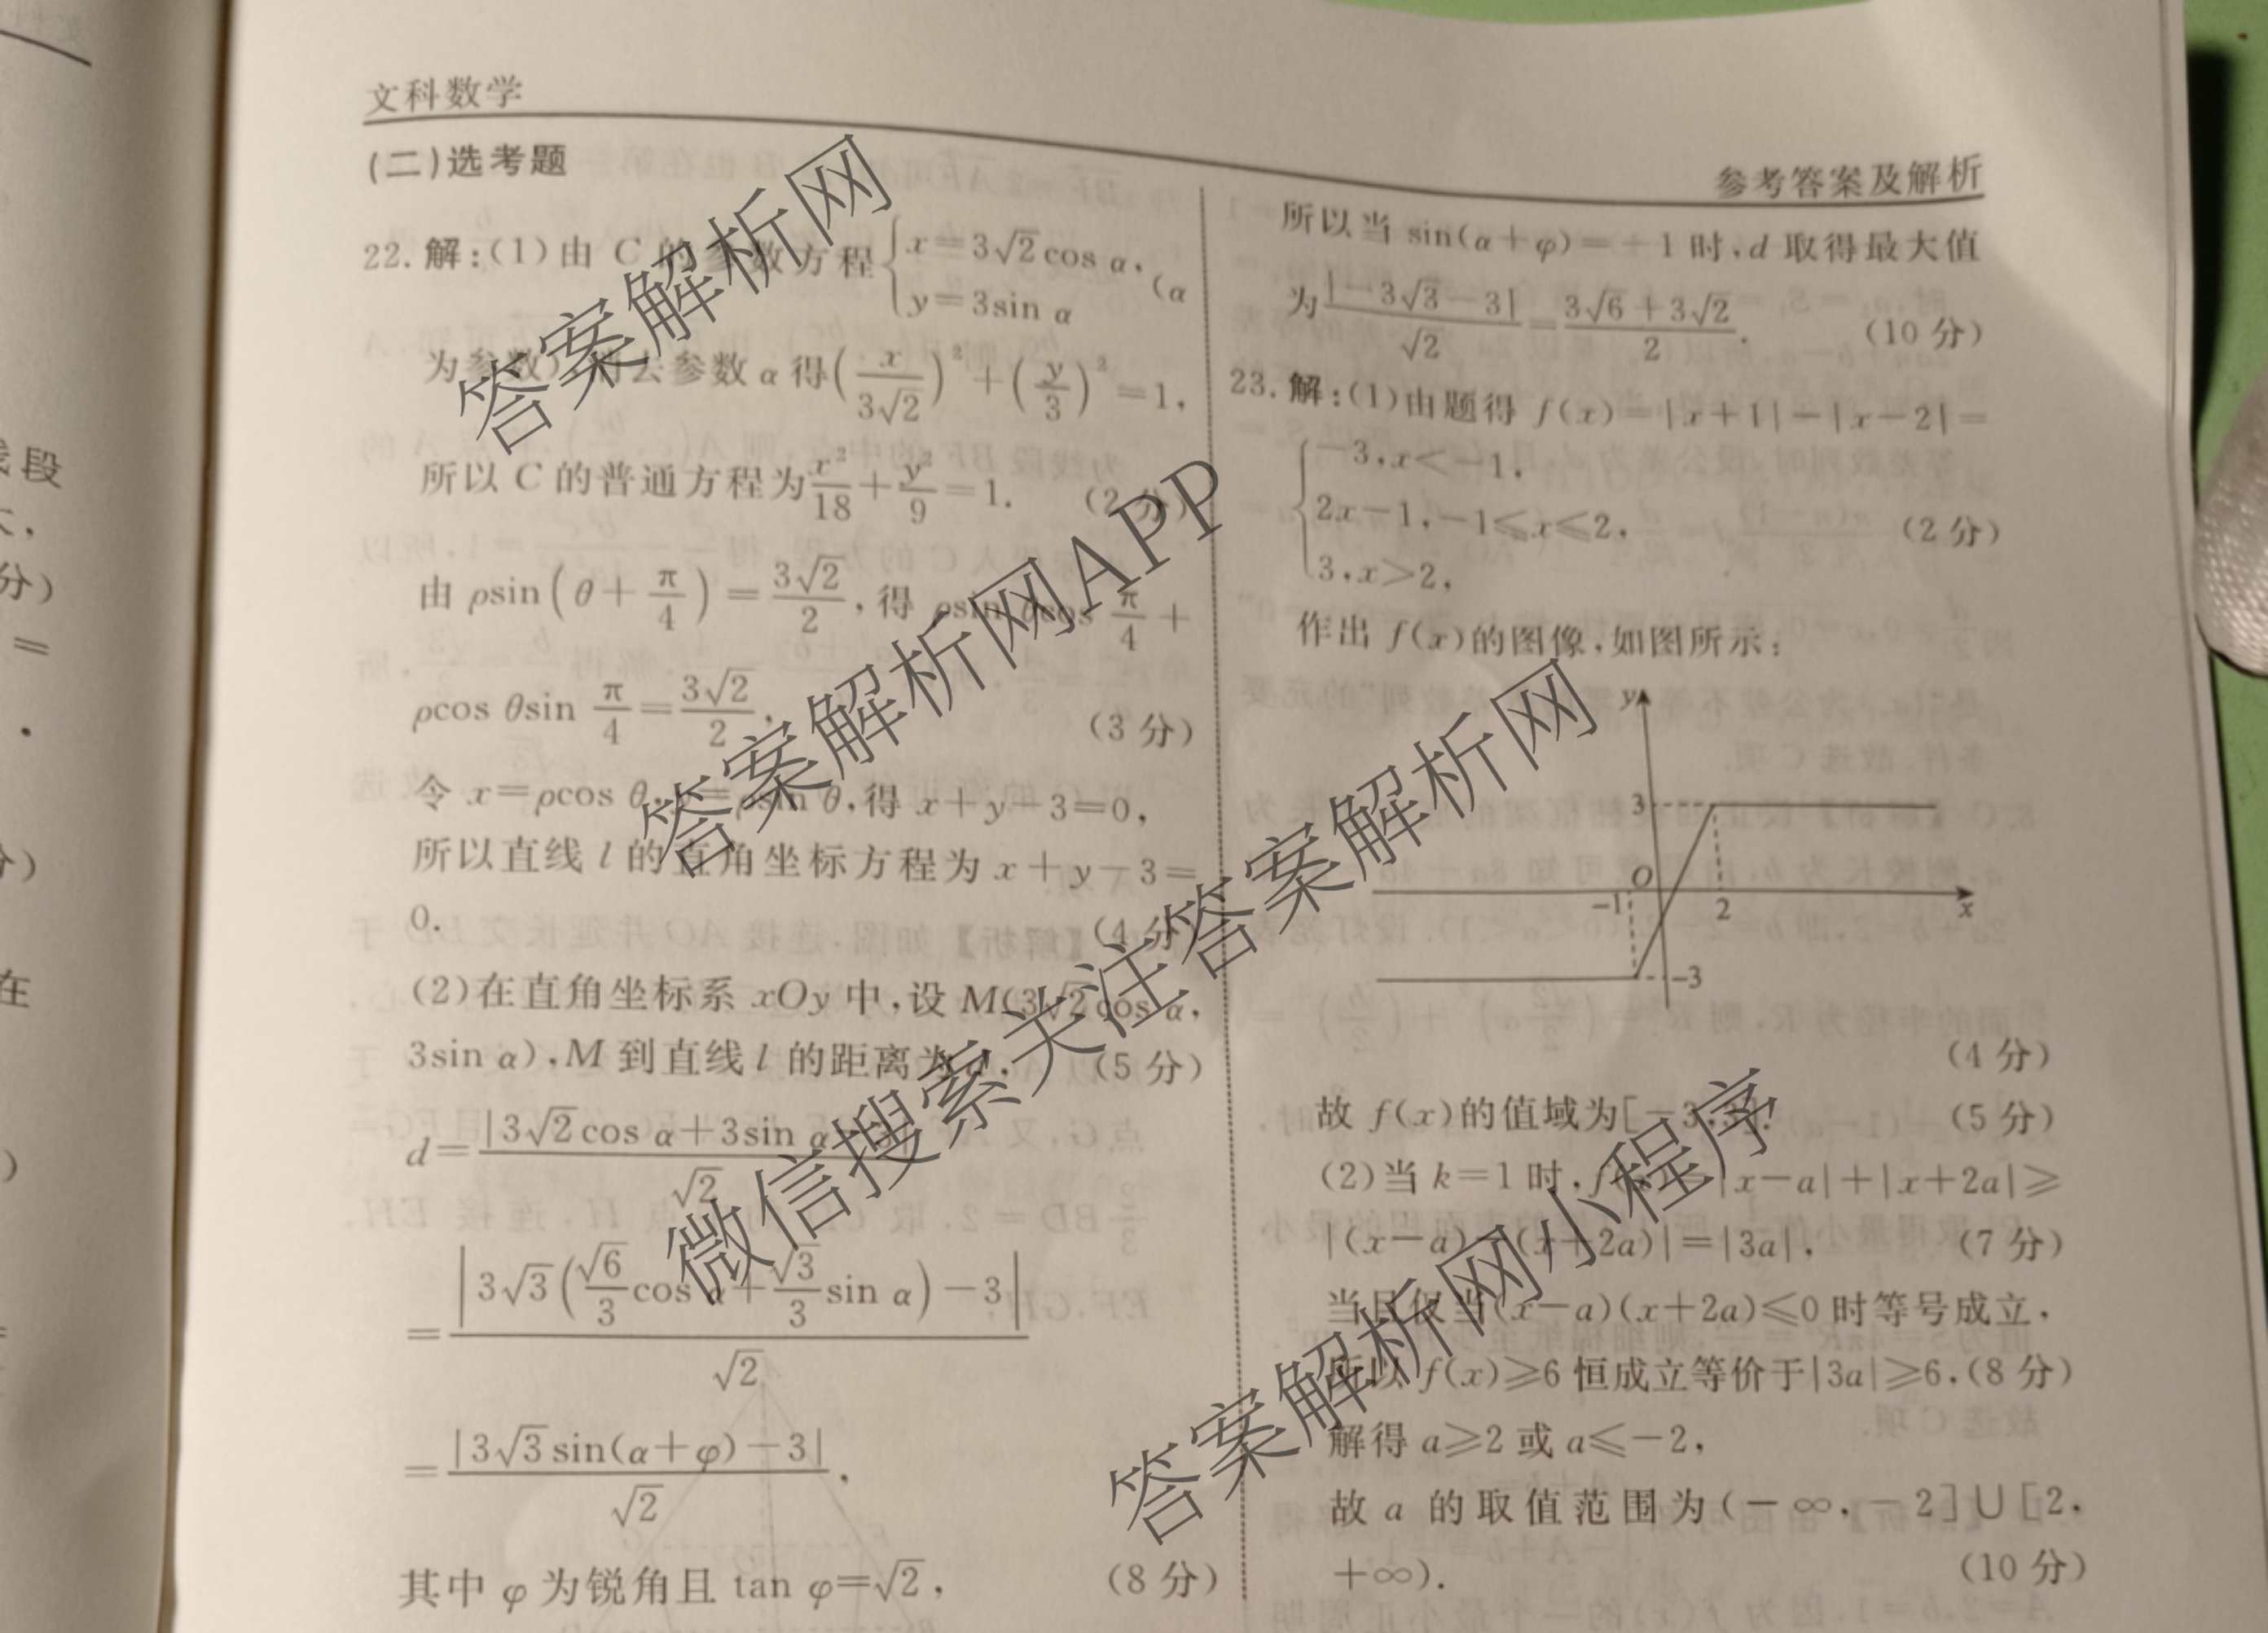 文科数学
参考答案及解析
(二)选考题
22. 解:(1)由 C 的参数方程{x=3√2cos α, y=3sin α (α
为参数),消去参数 α 得(x/(3√2))²+(y/3)²=1,
所以 C 的普通方程为x²/18+y²/9=1. (2 分)
由 ρsin(θ+π/4)=3√2/2,得 ρsin θcos π/4+
ρcos θsin π/4=3√2/2, (3 分)
令 x=ρcos θ,y=ρsin θ,得 x+y-3=0,
所以直线 l 的直角坐标方程为 x+y-3=
0. (4 分)
(2)在直角坐标系 xOy 中,设 M(3√2cos α,
3sin α),M 到直线 l 的距离为 d, (5 分)
d=|3√2cos α+3sin α-3|/√2
=|3√3(√6/3cos α+√3/3sin α)-3|/√2
=|3√3sin(α+φ)-3|/√2,
其中 φ 为锐角且 tan φ=√2, (8 分)
所以当 sin(α+φ)=-1 时,d 取得最大值
为|-3√3-3|/√2=(3√6+3√2)/2. (10 分)
23. 解:(1)由题得 f(x)=|x+1|-|x-2|=
{-3,x<-1,
2x-1,-1≤x≤2, (2 分)
3,x>2,
作出 f(x)的图像,如图所示:
y
3
O
-1
2
x
-3
(4 分)
故 f(x)的值域为[-3,3]. (5 分)
(2)当 k=1 时,f(x)=|x-a|+|x+2a|≥
|(x-a)-(x+2a)|=|3a|, (7 分)
当且仅当(x-a)(x+2a)≤0 时等号成立,
所以 f(x)≥6 恒成立等价于|3a|≥6,(8 分)
解得 a≥2 或 a≤-2,
故 a 的取值范围为(-∞,-2]∪[2,
+∞). (10 分)
线段
分)
=
在
答案解析网
答案解析网APP
微信搜索关注答案解析网
答案解析网小程序